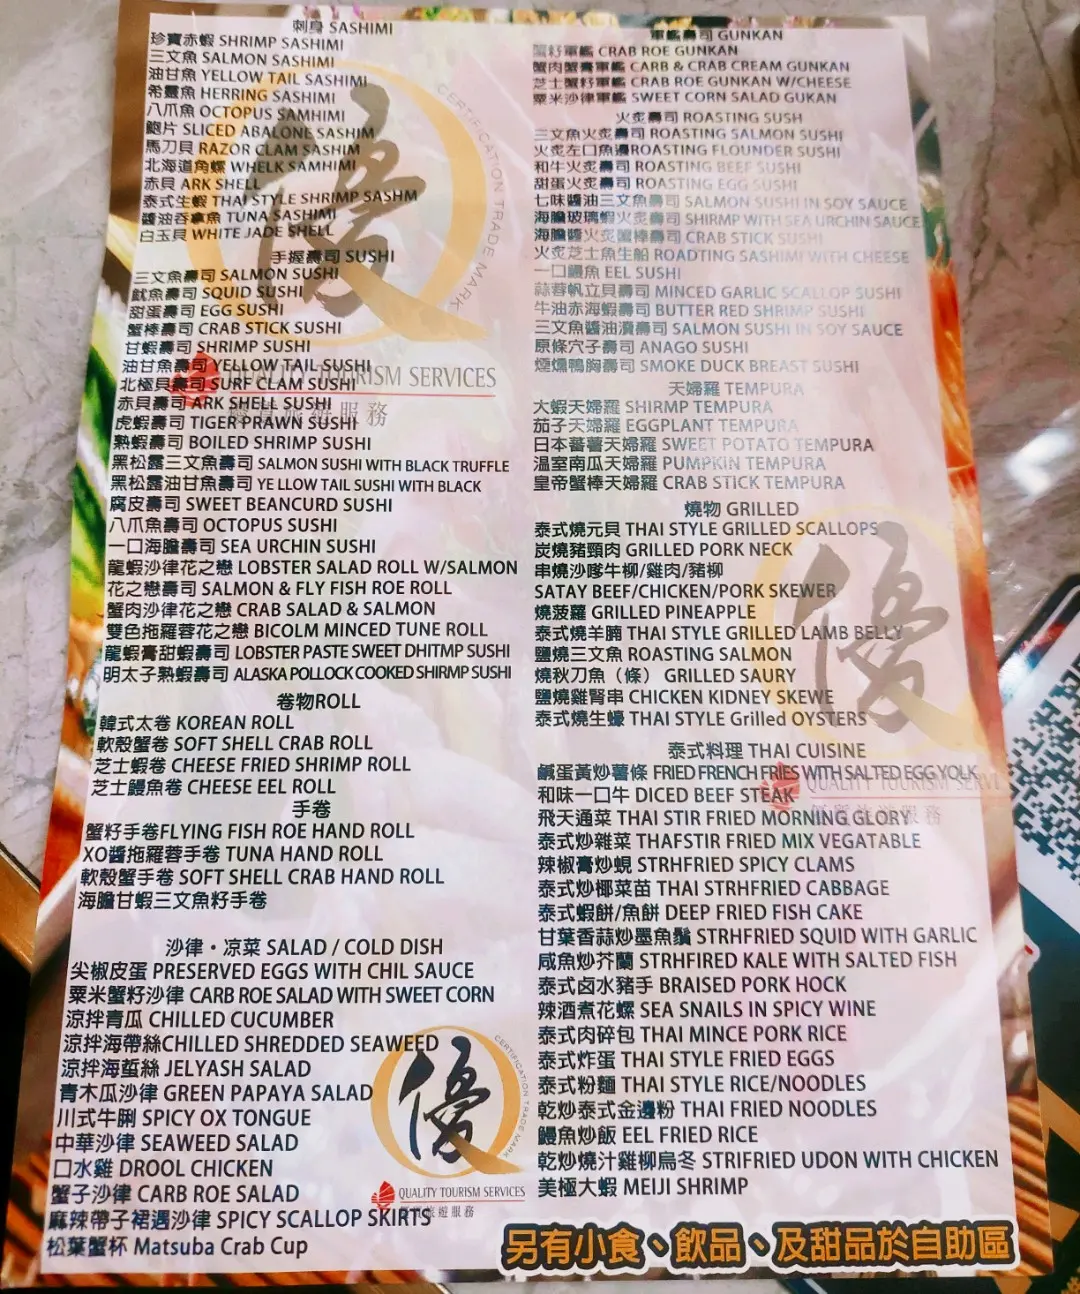 刺身 SASHIMI
珍寶赤蝦 SHRIMP SASHIMI
三文魚 SALMON SASHIMI
油甘魚 YELLOW TAIL SASHIMI
希靈魚 HERRING SASHIMI
八爪魚 OCTOPUS SAMHIMI
鮑片 SLICED ABALONE SASHIM
馬刀貝 RAZOR CLAM SASHIM
北海道角螺 WHELK SAMHIMI
赤貝 ARK SHELL
泰式生蝦 THAI STYLE SHRIMP SASHM
醬油吞拿魚 TUNA SASHIMI
白玉貝 WHITE JADE SHELL
手握壽司 SUSHI
三文魚壽司 SALMON SUSHI
魷魚壽司 SQUID SUSHI
甜蛋壽司 EGG SUSHI
蟹棒壽司 CRAB STICK SUSHI
甘蝦壽司 SHRIMP SUSHI
油甘魚壽司 YELLOW TAIL SUSHI
北極貝壽司 SURF CLAM SUSHI
赤貝壽司 ARK SHELL SUSHI
虎蝦壽司 TIGER PRAWN SUSHI
熟蝦壽司 BOILED SHRIMP SUSHI
黑松露三文魚壽司 SALMON SUSHI WITH BLACK TRUFFLE
黑松露油甘魚壽司 YE LLOW TAIL SUSHI WITH BLACK
腐皮壽司 SWEET BEANCURD SUSHI
八爪魚壽司 OCTOPUS SUSHI
一口海膽壽司 SEA URCHIN SUSHI
龍蝦沙律花之戀 LOBSTER SALAD ROLL W/SALMON
花之戀壽司 SALMON & FLY FISH ROE ROLL
蟹肉沙律花之戀 CRAB SALAD & SALMON
雙色拖羅蓉花之戀 BICOLM MINCED TUNE ROLL
龍蝦膏甜蝦壽司 LOBSTER PASTE SWEET DHITMP SUSHI
明太子熟蝦壽司 ALASKA POLLOCK COOKED SHIRMP SUSHI
卷物ROLL
韓式太卷 KOREAN ROLL
軟殼蟹卷 SOFT SHELL CRAB ROLL
芝士蝦卷 CHEESE FRIED SHRIMP ROLL
芝士鰻魚卷 CHEESE EEL ROLL
手卷
蟹籽手卷FLYING FISH ROE HAND ROLL
XO醬拖羅蓉手卷 TUNA HAND ROLL
軟殼蟹手卷 SOFT SHELL CRAB HAND ROLL
海膽甘蝦三文魚籽手卷
沙律・凉菜 SALAD / COLD DISH
尖椒皮蛋 PRESERVED EGGS WITH CHIL SAUCE
粟米蟹籽沙律 CARB ROE SALAD WITH SWEET CORN
涼拌青瓜 CHILLED CUCUMBER
涼拌海帶絲CHILLED SHREDDED SEAWEED
涼拌海蜇絲 JELYASH SALAD
青木瓜沙律 GREEN PAPAYA SALAD
川式牛脷 SPICY OX TONGUE
中華沙律 SEAWEED SALAD
口水雞 DROOL CHICKEN
蟹子沙律 CARB ROE SALAD
麻辣帶子裙邊沙律 SPICY SCALLOP SKIRTS
松葉蟹杯 Matsuba Crab Cup
軍艦壽司 GUNKAN
蟹籽軍艦 CRAB ROE GUNKAN
蟹肉蟹膏軍艦 CARB & CRAB CREAM GUNKAN
芝士蟹籽軍艦 CRAB ROE GUNKAN W/CHEESE
粟米沙律軍艦 SWEET CORN SALAD GUKAN
火炙壽司 ROASTING SUSH
三文魚火炙壽司 ROASTING SALMON SUSHI
火炙左口魚邊ROASTING FLOUNDER SUSHI
和牛火炙壽司 ROASTING BEEF SUSHI
甜蛋火炙壽司 ROASTING EGG SUSHI
七味醬油三文魚壽司 SALMON SUSHI IN SOY SAUCE
海膽玻璃蝦火炙壽司 SHIRMP WITH SEA URCHIN SAUCE
海膽醬火炙蟹棒壽司 CRAB STICK SUSHI
火炙芝士魚生船 ROADTING SASHIMI WITH CHEESE
一口鰻魚 EEL SUSHI
蒜蓉帆立貝壽司 MINCED GARLIC SCALLOP SUSHI
牛油赤海蝦壽司 BUTTER RED SHRIMP SUSHI
三文魚醬油漬壽司 SALMON SUSHI IN SOY SAUCE
原條穴子壽司 ANAGO SUSHI
煙燻鴨胸壽司 SMOKE DUCK BREAST SUSHI
天婦羅 TEMPURA
大蝦天婦羅 SHIRMP TEMPURA
茄子天婦羅 EGGPLANT TEMPURA
日本蕃薯天婦羅 SWEET POTATO TEMPURA
溫室南瓜天婦羅 PUMPKIN TEMPURA
皇帝蟹棒天婦羅 CRAB STICK TEMPURA
燒物 GRILLED
泰式燒元貝 THAI STYLE GRILLED SCALLOPS
炭燒豬頸肉 GRILLED PORK NECK
串燒沙嗲牛柳/雞肉/豬柳
SATAY BEEF/CHICKEN/PORK SKEWER
燒菠蘿 GRILLED PINEAPPLE
泰式燒羊腩 THAI STYLE GRILLED LAMB BELLY
鹽燒三文魚 ROASTING SALMON
燒秋刀魚（條） GRILLED SAURY
鹽燒雞腎串 CHICKEN KIDNEY SKEWE
泰式燒生蠔 THAI STYLE Grilled OYSTERS
泰式料理 THAI CUISINE
鹹蛋黃炒薯條 FRIED FRENCH FRIES WITH SALTED EGG YOLK
和味一口牛 DICED BEEF STEAK
飛天通菜 THAI STIR FRIED MORNING GLORY
泰式炒雜菜 THAFSTIR FRIED MIX VEGATABLE
辣椒膏炒蜆 STRHFRIED SPICY CLAMS
泰式炒椰菜苗 THAI STRHFRIED CABBAGE
泰式蝦餅/魚餅 DEEP FRIED FISH CAKE
甘葉香蒜炒墨魚鬚 STRHFRIED SQUID WITH GARLIC
咸魚炒芥蘭 STRHFIRED KALE WITH SALTED FISH
泰式卤水豬手 BRAISED PORK HOCK
辣酒煮花螺 SEA SNAILS IN SPICY WINE
泰式肉碎包 THAI MINCE PORK RICE
泰式炸蛋 THAI STYLE FRIED EGGS
泰式粉麵 THAI STYLE RICE/NOODLES
乾炒泰式金邊粉 THAI FRIED NOODLES
鰻魚炒飯 EEL FRIED RICE
乾炒燒汁雞柳烏冬 STRIFRIED UDON WITH CHICKEN
美極大蝦 MEIJI SHRIMP
另有小食、飲品、及甜品於自助區
優
CERTIFICATION TRADE MARK
QUALITY TOURISM SERVICES
優質旅遊服務
優
QUALITY TOURISM SERVI
優
CERTIFICATION TRADE MARK
QUALITY TOURISM SERVICES
優質旅遊服務